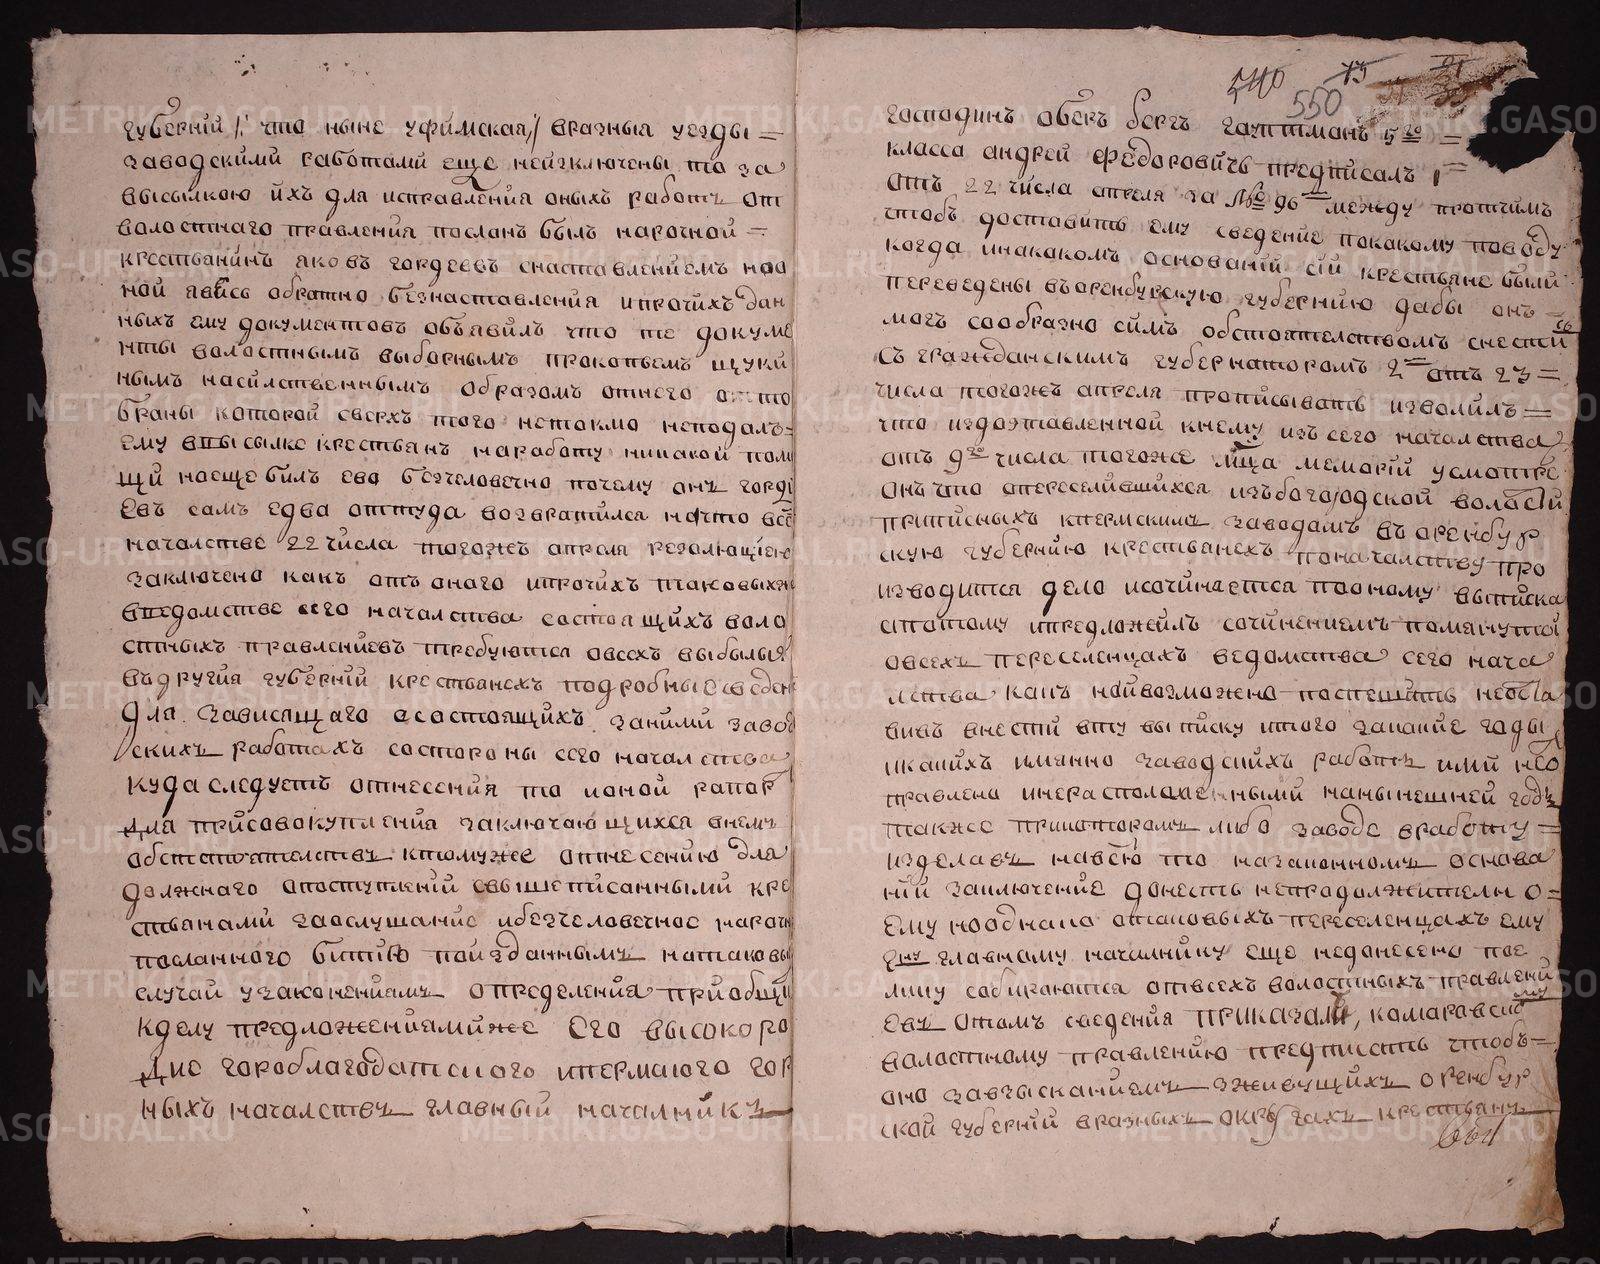 губерній /: что ныне уфимская :/ вразныя уезды =
заводскими работами еще неизключены то за
высылкою ихъ для исправления оныхъ работъ от
волостнаго правления посланъ былъ нарочной =
крестьянинъ яковъ гордеевъ снаставлениемъ но о
ной явись обратно безнаставления ипротчихъ дан
ныхъ ему документовъ объявилъ что те докуме
нты волостнымъ выборнымъ прокопьемъ щуки
нымъ насилственнымъ образомъ отнего отто
браны которой сверхъ того нетокмо неподалъ =
ему ввысылке крестьянъ наработу никакой помо
щиноеще билъ ево безчеловечно почему онъ горди
евъ самъ едва оттуда возвратился начто всем
началстве 22 числа тогожъ апреля резолюциею
заключено какъ отъ оного ипрочихъ таковыхже
введомстве сего началства состоящихъ воло
стныхъ правлениевъ требуются овсехъ выбылыя
въдругия губерній крестьянехъ подробные сведен
для зависящаго осостоящихъ заними завод
скихъ работахъ состороны сего началства
куда следуетъ отнесения то ионой рапор
для присовокупления заключающихся внемъ
обстоятелствъ ктомуже отнесению для
должнаго опоступлений свышеписанными кре
стьянами заослушание ибезчеловечное нарочн
посланного битию поизданнымъ натаковы
случай узаконениямъ определения приобщи
кделу предложениямиже Его высокоро
дие гороблагодатского ипермского гор
ныхъ началствъ главный началникъ
540 550
господинъ оберъ бергъ гауптманъ 5го =
класса андрей федоровичъ предписалъ 1е =
отъ 22 числа апреля за № 96 между протчимъ
чтобъ доставить ему сведение покакому поводу
когда инакакомъ основаній сіи крестьяне были
переведены въоренбургскую губернию дабы онъ =
могъ сообразно симъ обстоятелствомъ снестись
съ гражданскимъ губернаторомъ 2е отъ 23 =
числа тогожъ апреля прописывать изволилъ =
что издоставленной кнему изъ сего началства
отъ 9го числа тогоже мца меморій усмотре
онъ что опереселившихся изъ богородской волости
приписныхъ кпермскимъ заводамъ въ оренбур
скую губернию крестьянехъ поначалству про
изводится дело исочиняется поономy выписка
спотому ипредложилъ сочинениемъ помянутой
овсехъ переселенцахъ ведомства сего нача
лства какъ наивозможно поспешить неоста
вивъ внести вту выписку итого запакие годы
икакихъ именно заводскихъ работъ ими неo
правлено инерасположенными нанынешней годъ
также прикоторомъ либо заводе вработу =
изделавъ навсю то назаконномъ основа
ній заключение донесть непродолжителн о =
ему нооднако отаковыхъ переселенцахъ ему
гну главному началнику еще недонесено пое
лику собираются отвсехъ волостныхъ правлени
евъ отомъ сведения ПРИКАЗАЛИ, комаровскому
волостному правлению предписать чтобъ =
оно завзысканиемъ зживущихъ оренбур
ской губерній вразныхъ округахъ крестьянъ